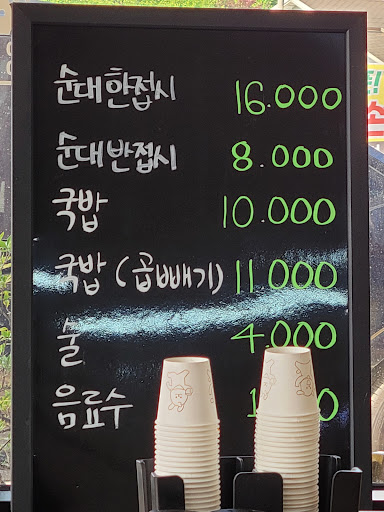 순대한접시 16.000
순대반접시 8.000
국밥 10.000
국밥 (곱빼기) 11.000
술 4.000
음료수